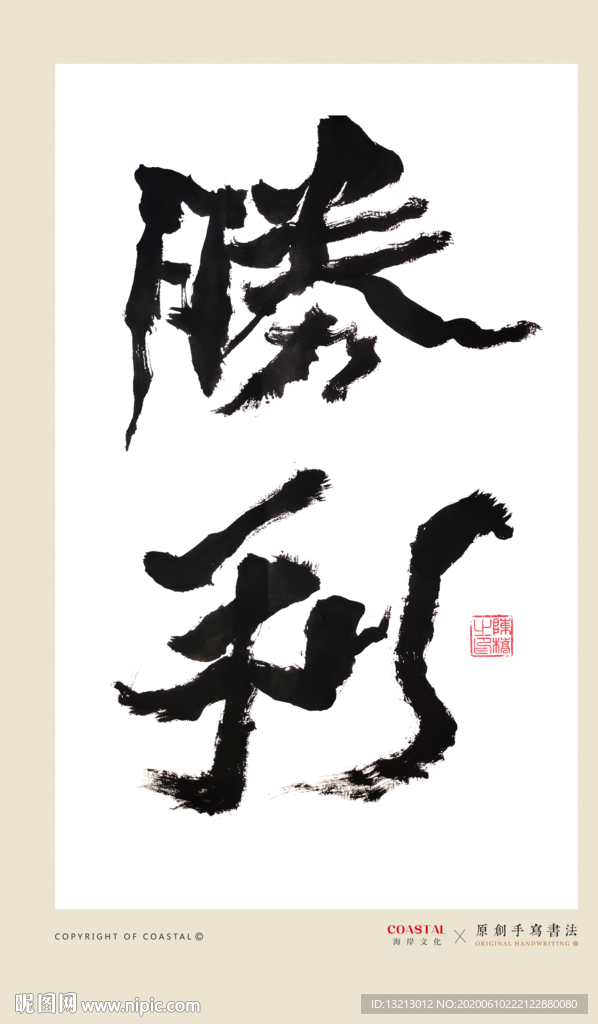 勝
利
陳橋之印
COPYRIGHT OF COASTAL©
COASTAL
海岸文化
×
原創手寫書法
ORIGINAL HANDWRITING
昵图网 www.nipic.com
ID:13213012 NO:20200610222122880080